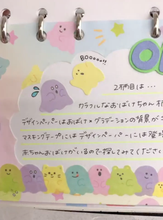 BOOOOO!!
O
2柄目は…
カラフルなおばけちゃん
デザインペーパーはおばけ＊グラデーションの背景が
マスキングテープにはデザインペーパーにも
赤ちゃんおばけがいるので探してみてくださ